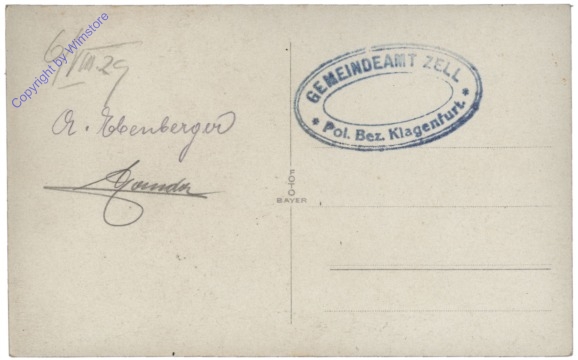 Copyright by Wimstore
6/VIII.29
A. Ebenberger
GEMEINDEAMT ZELL
* Pol. Bez. Klagenfurt. *
FOTO
BAYER